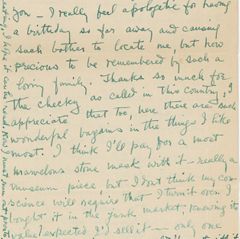 you – I really feel apologetic for having
a birthday so far away and causing
such bother to locate me, but how
precious to be remembered by such a
lovely family. Thanks so much for
the cheeky as called in this country, I
appreciate that too, here there are such
wonderful bargains in the things I like
most. I think I'll pay for a most
marvelous stone mask with it – really a
museum piece but I don't think my con-
science will require that I turn it over. I
bought it in the junk market, knowing its
value/expected I'd sell it – only one